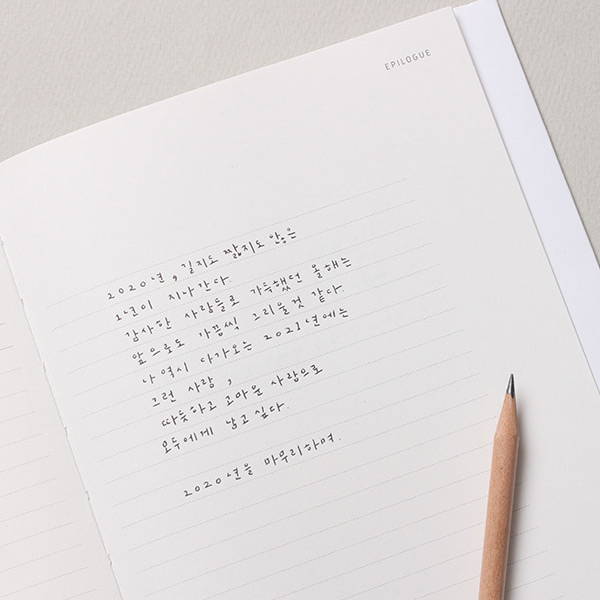 EPILOGUE
2020년, 길지도 짧지도 않은
1년이 지나간다
감사한 사람들로 가득했던 올해는
앞으로도 가끔씩 그리울것 같다.
나 역시 다가오는 2021년에는
그런 사람,
따듯하고 고마운 사람으로
모두에게 남고 싶다.
2020년을 마무리하며.